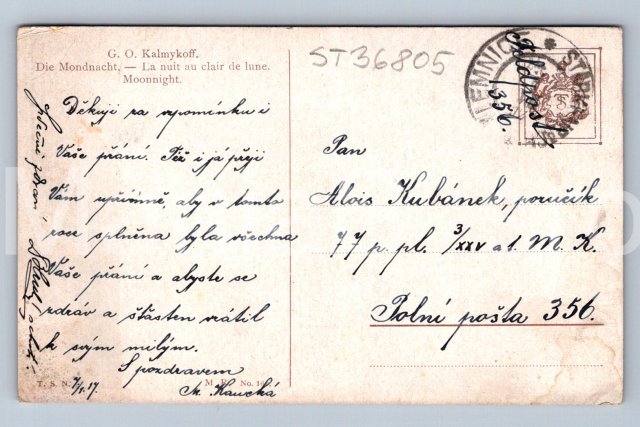 G. O. Kalmykoff.
Die Mondnacht. — La nuit au clair de lune.
Moonnight.
ST36805
Feldpost
356.
Děkuji za vzpomínku i
Vaše přání. Též i já přeji
Vám upřímně, aby v tomto
roce splněna byla všechna
Vaše přání a abyste se
zdráv a šťasten vrátil
k svým milým.
S pozdravem
M. Kaucká
7/1.17.
Srdečný pozdrav
Pan
Alois Kubánek, poručík
77 p. pl. 3/XXV a 1. M. K.
Polní pošta 356.
T. S. N.
No.